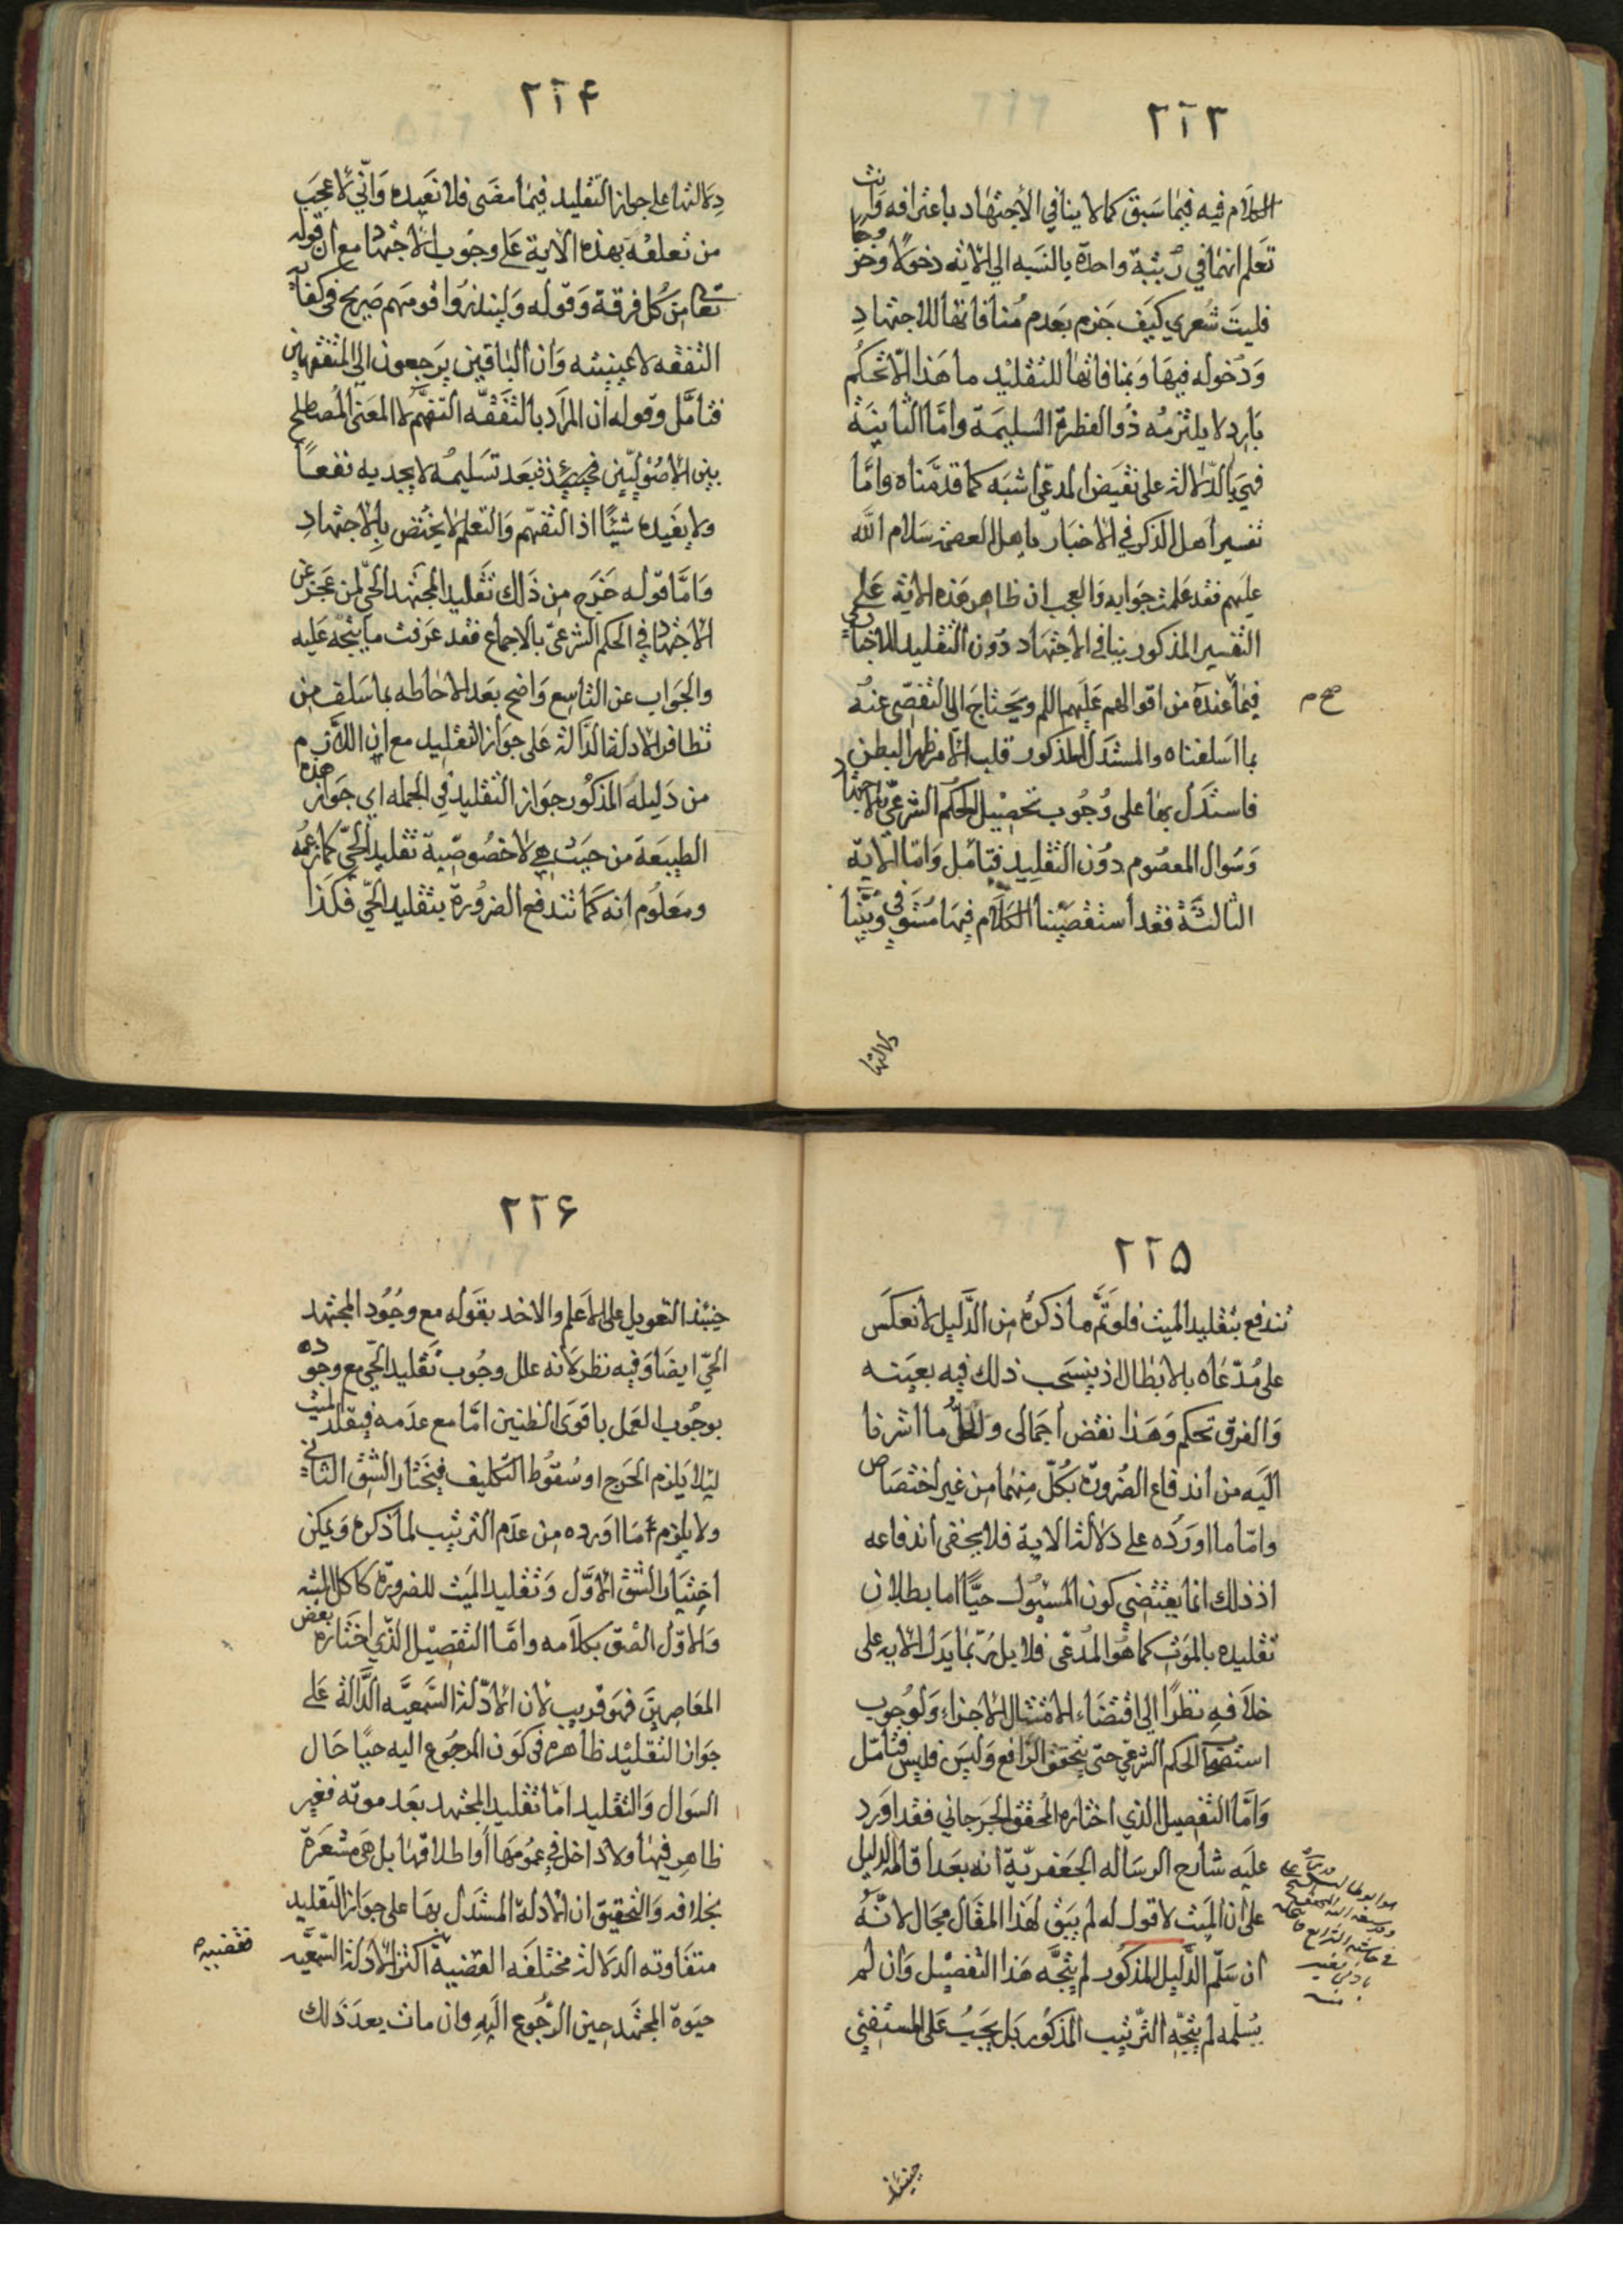 ٢٢٣
الكلام فيه فيما سبق كما لا ينافي الاجتهاد باعترافه وانت
تعلم انهما في رتبة واحدة بالنسبه الى الاية دخولا وخروجا
فليت شعري كيف جزم بعدم منافاتها للاجتهاد
ودخوله فيها وبمنافاتها للتقليد ما هذا الا تحكم
بارد لا يلتزمه ذو الفطرة السليمة واما الثانية
فهي بالدلالة على نقيض المدعى اشبه كما قدمناه واما
تفسير اهل الذكر في الاخبار باهل العصمة سلام الله
عليهم فقد علمت جوابه والعجب ان ظاهر هذه الاية على
التفسير المذكور ينافي الاجتهاد دون التقليد للاخباري
فيما عنده من اقوالهم عليهم السلم ويحتاج الى التفصى عنه
صح م
بما اسلفناه والمستدل المذكور قلب الامر ظهر البطن
فاستدل بها على وجوب تحصيل الحكم الشرعي بالاجتهاد
وسوال المعصوم دون التقليد فتامل واما الاية
الثالثة فقد استقصينا الكلام فيها مستوفى وبينا
دلالتها
٢٢۴
دلالتها على جواز التقليد فيما مضى فلا نعيده واني لاعجب
من تعلقه بهذه الاية على وجوب الاجتهاد مع ان قوله
تعالى من كل فرقة وقوله ولينذروا قومهم صريح في كفاية
التفقه لا عينيته وان الباقين يرجعون الى المتفقهين
فتامل وقوله ان المراد بالتفقه التفهم لا المعنى المصطلح
بين الاصوليين فحينئذ فبعد تسليمه لا يجديه نفعا
ولا يفيده شيئا اذ التفهم والتعلم لا يختص بالاجتهاد
واما قوله خرج من ذلك تقليد المجتهد الحي لمن عجز عن
الاجتهاد في الحكم الشرعي بالاجماع فقد عرفت ما يتجه عليه
والجواب عن التاسع واضح بعد الاحاطه بما سلف من
تظافر الادلة الدالة على جواز التقليد مع ان اللازم
من دليله المذكور جواز التقليد في الجمله اي جواز هذه
الطبيعة من حيث هي لا خصوصية تقليد الحي كما زعمه
ومعلوم انه كما تندفع الضرورة بتقليد الحي فكذا
٢٢۵
تندفع بتقليد الميت فلو تم ما ذكره من الدليل لانعكس
على مدعاه بالابطال اذ ينسحب ذلك فيه بعينه
والفرق تحكم وهذا نقض اجمالى والحل ما اشرنا
اليه من اندفاع الضرورة بكل منهما من غير اختصاص
واما ما اورده على دلالة الاية فلا يخفى اندفاعه
اذ ذلك انما يقتضي كون المسئول حيا اما بطلان
تقليده بالموت كما هو المدعى فلا بل ربما يدل الايه على
خلافه نظرا الى اقتضاء الامتثال الاجزاء ولوجوب
استصحاب الحكم الشرعي حتى يتحقق الرافع وليس فليس فتامل
واما التفصيل الذي اختاره المحقق الجرجاني فقد اورد
عليه شارح الرساله الجعفرية انه بعد اقامه الدليل
على ان الميت لا قول له لم يبق لهذا المقال مجال لانه
ان سلم الدليل المذكور لم يتجه هذا التفصيل وان لم
يسلمه لم يتجه الترتيب المذكور بل يجب على المستفتي
حينئذ
٢٢۶
حينئذ التعويل على الاعلم والاخذ بقوله مع وجود المجتهد
الحي ايضا وفيه نظر لانه علل وجوب تقليد الحي مع وجوده
بوجوب العمل باقوى الظنين اما مع عدمه فيقلد الميت
ليلا يلزم الحرج او سقوط التكليف فيختار الشق الثاني
ولا يلزم ما اورده من عدم الترتيب لما ذكره ويمكن
اختيار الشق الاول وتقليد الميت للضرورة كاكل الميته
والاول الصق بكلامه واما التفصيل الذي اختاره بعض
المعاصرين فهو قريب لان الادلة السمعيه الدالة على
جواز التقليد ظاهرة في كون المرجوع اليه حيا حال
السوال والتقليد اما تقليد المجتهد بعد موته فغير
ظاهر فيها ولا داخل في عمومها او اطلاقها بل هي مشعرة
بخلافه والتحقيق ان الادلة المستدل بها على جواز التقليد
متفاوته الدلالة مختلفه القضية اكثر الادلة السمعيه
فقضيه
حيوة المجتهد حين الرجوع اليه وان مات بعد ذلك